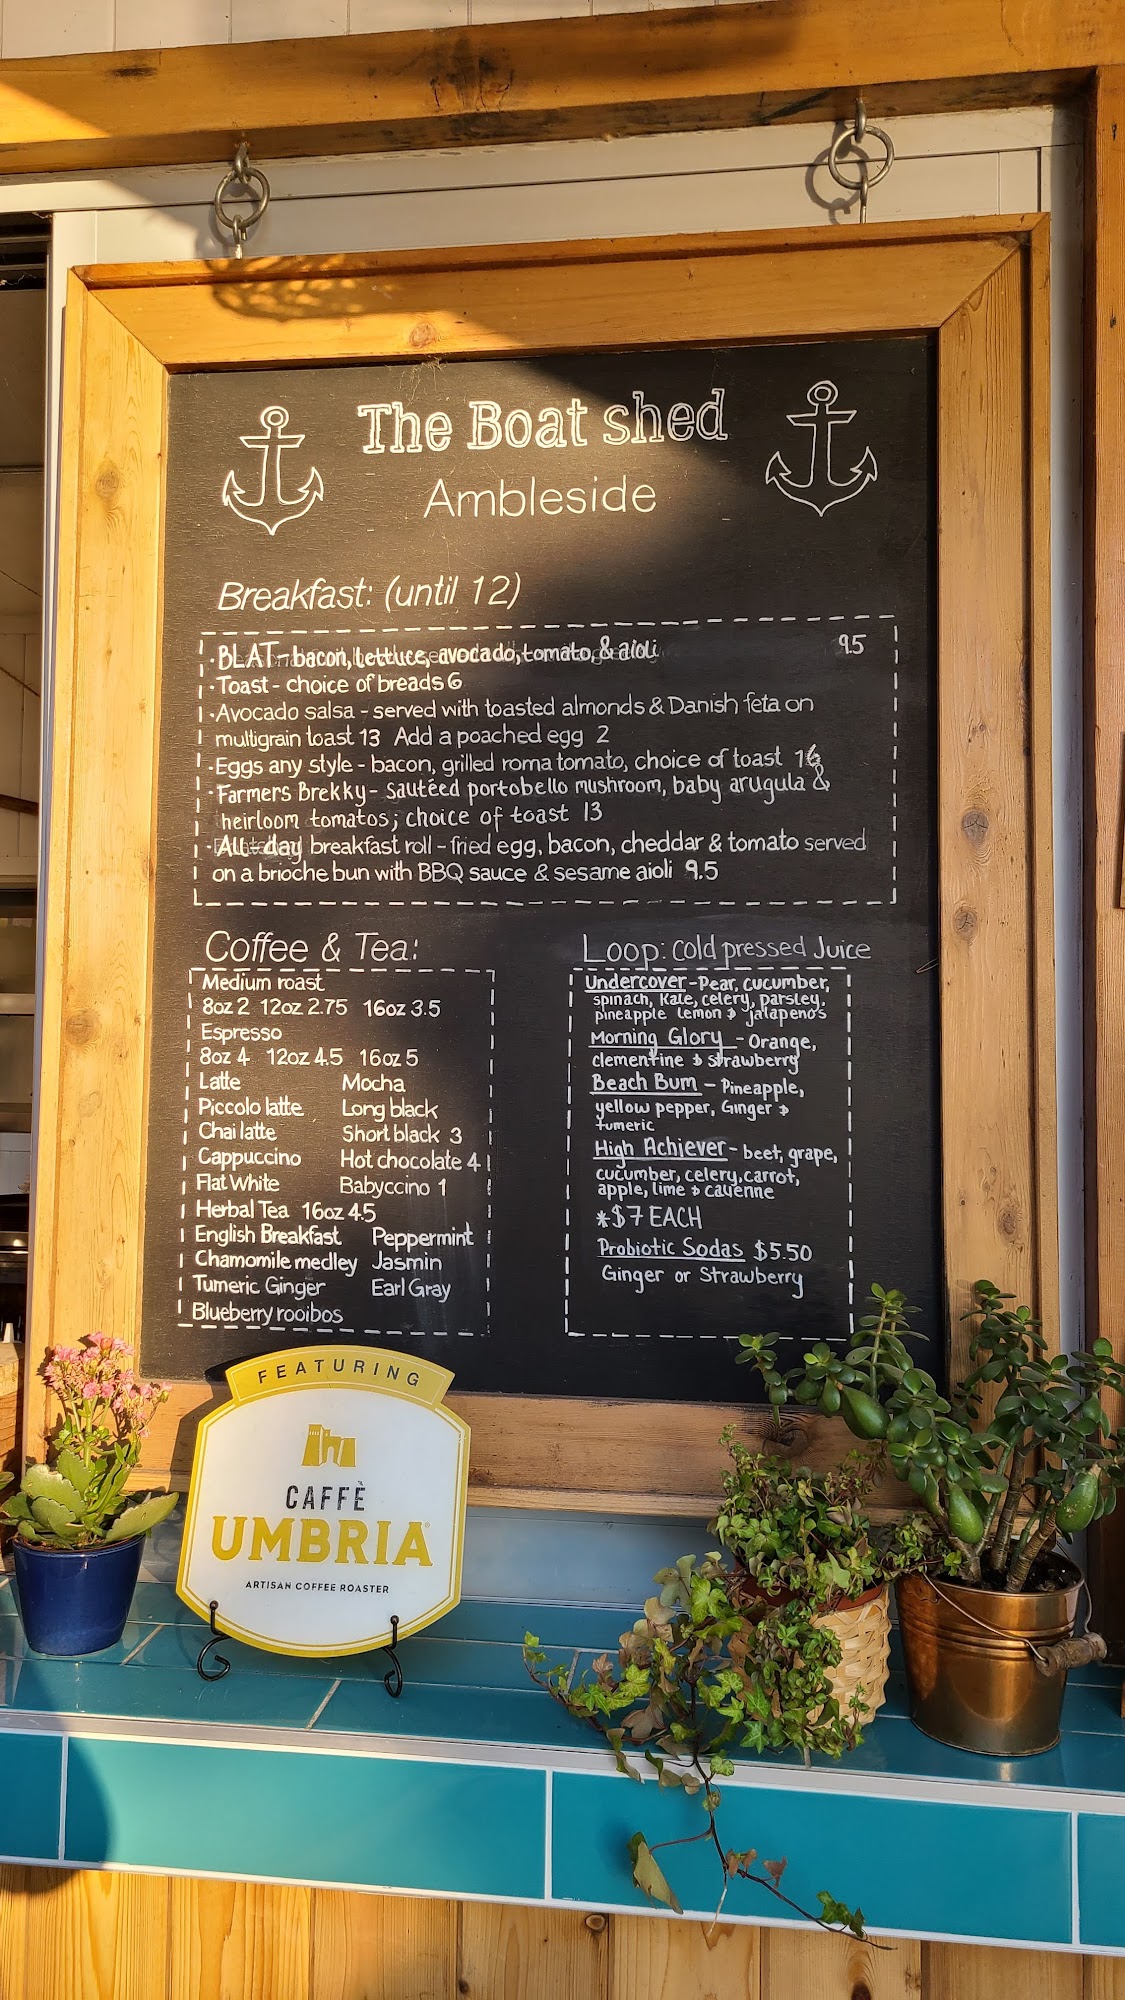 The Boat shed
Ambleside
Breakfast: (until 12)
·BLAT-bacon, Lettuce, avocado, tomato, & aioli 9.5
·Toast - choice of breads 6
·Avocado salsa - served with toasted almonds & Danish feta on
multigrain toast 13 Add a poached egg 2
·Eggs any style - bacon, grilled roma tomato, choice of toast 16
·Farmers Brekky- sautéed portobello mushroom, baby arugula &
heirloom tomatos; choice of toast 13
·All-day breakfast roll - fried egg, bacon, cheddar & tomato served
on a brioche bun with BBQ sauce & sesame aioli 9.5
Coffee & Tea:
Medium roast
8oz 2 12oz 2.75 16oz 3.5
Espresso
8oz 4 12oz 4.5 16oz 5
Latte Mocha
Piccolo latte Long black
Chai latte Short black 3
Cappuccino Hot chocolate 4
Flat White Babyccino 1
Herbal Tea 16oz 4.5
English Breakfast Peppermint
Chamomile medley Jasmin
Tumeric Ginger Earl Gray
Blueberry rooibos
Loop: cold pressed Juice
Undercover-Pear, cucumber,
spinach, Kale, celery, parsley,
pineapple lemon & jalapeno's
Morning Glory - Orange,
clementine & strawberry
Beach Bum - Pineapple,
yellow pepper, Ginger &
tumeric
High Achiever- beet, grape,
cucumber, celery, carrot,
apple, lime & cayenne
*$7 EACH
Probiotic Sodas $5.50
Ginger or Strawberry
FEATURING
CAFFÈ
UMBRIA®
ARTISAN COFFEE ROASTER